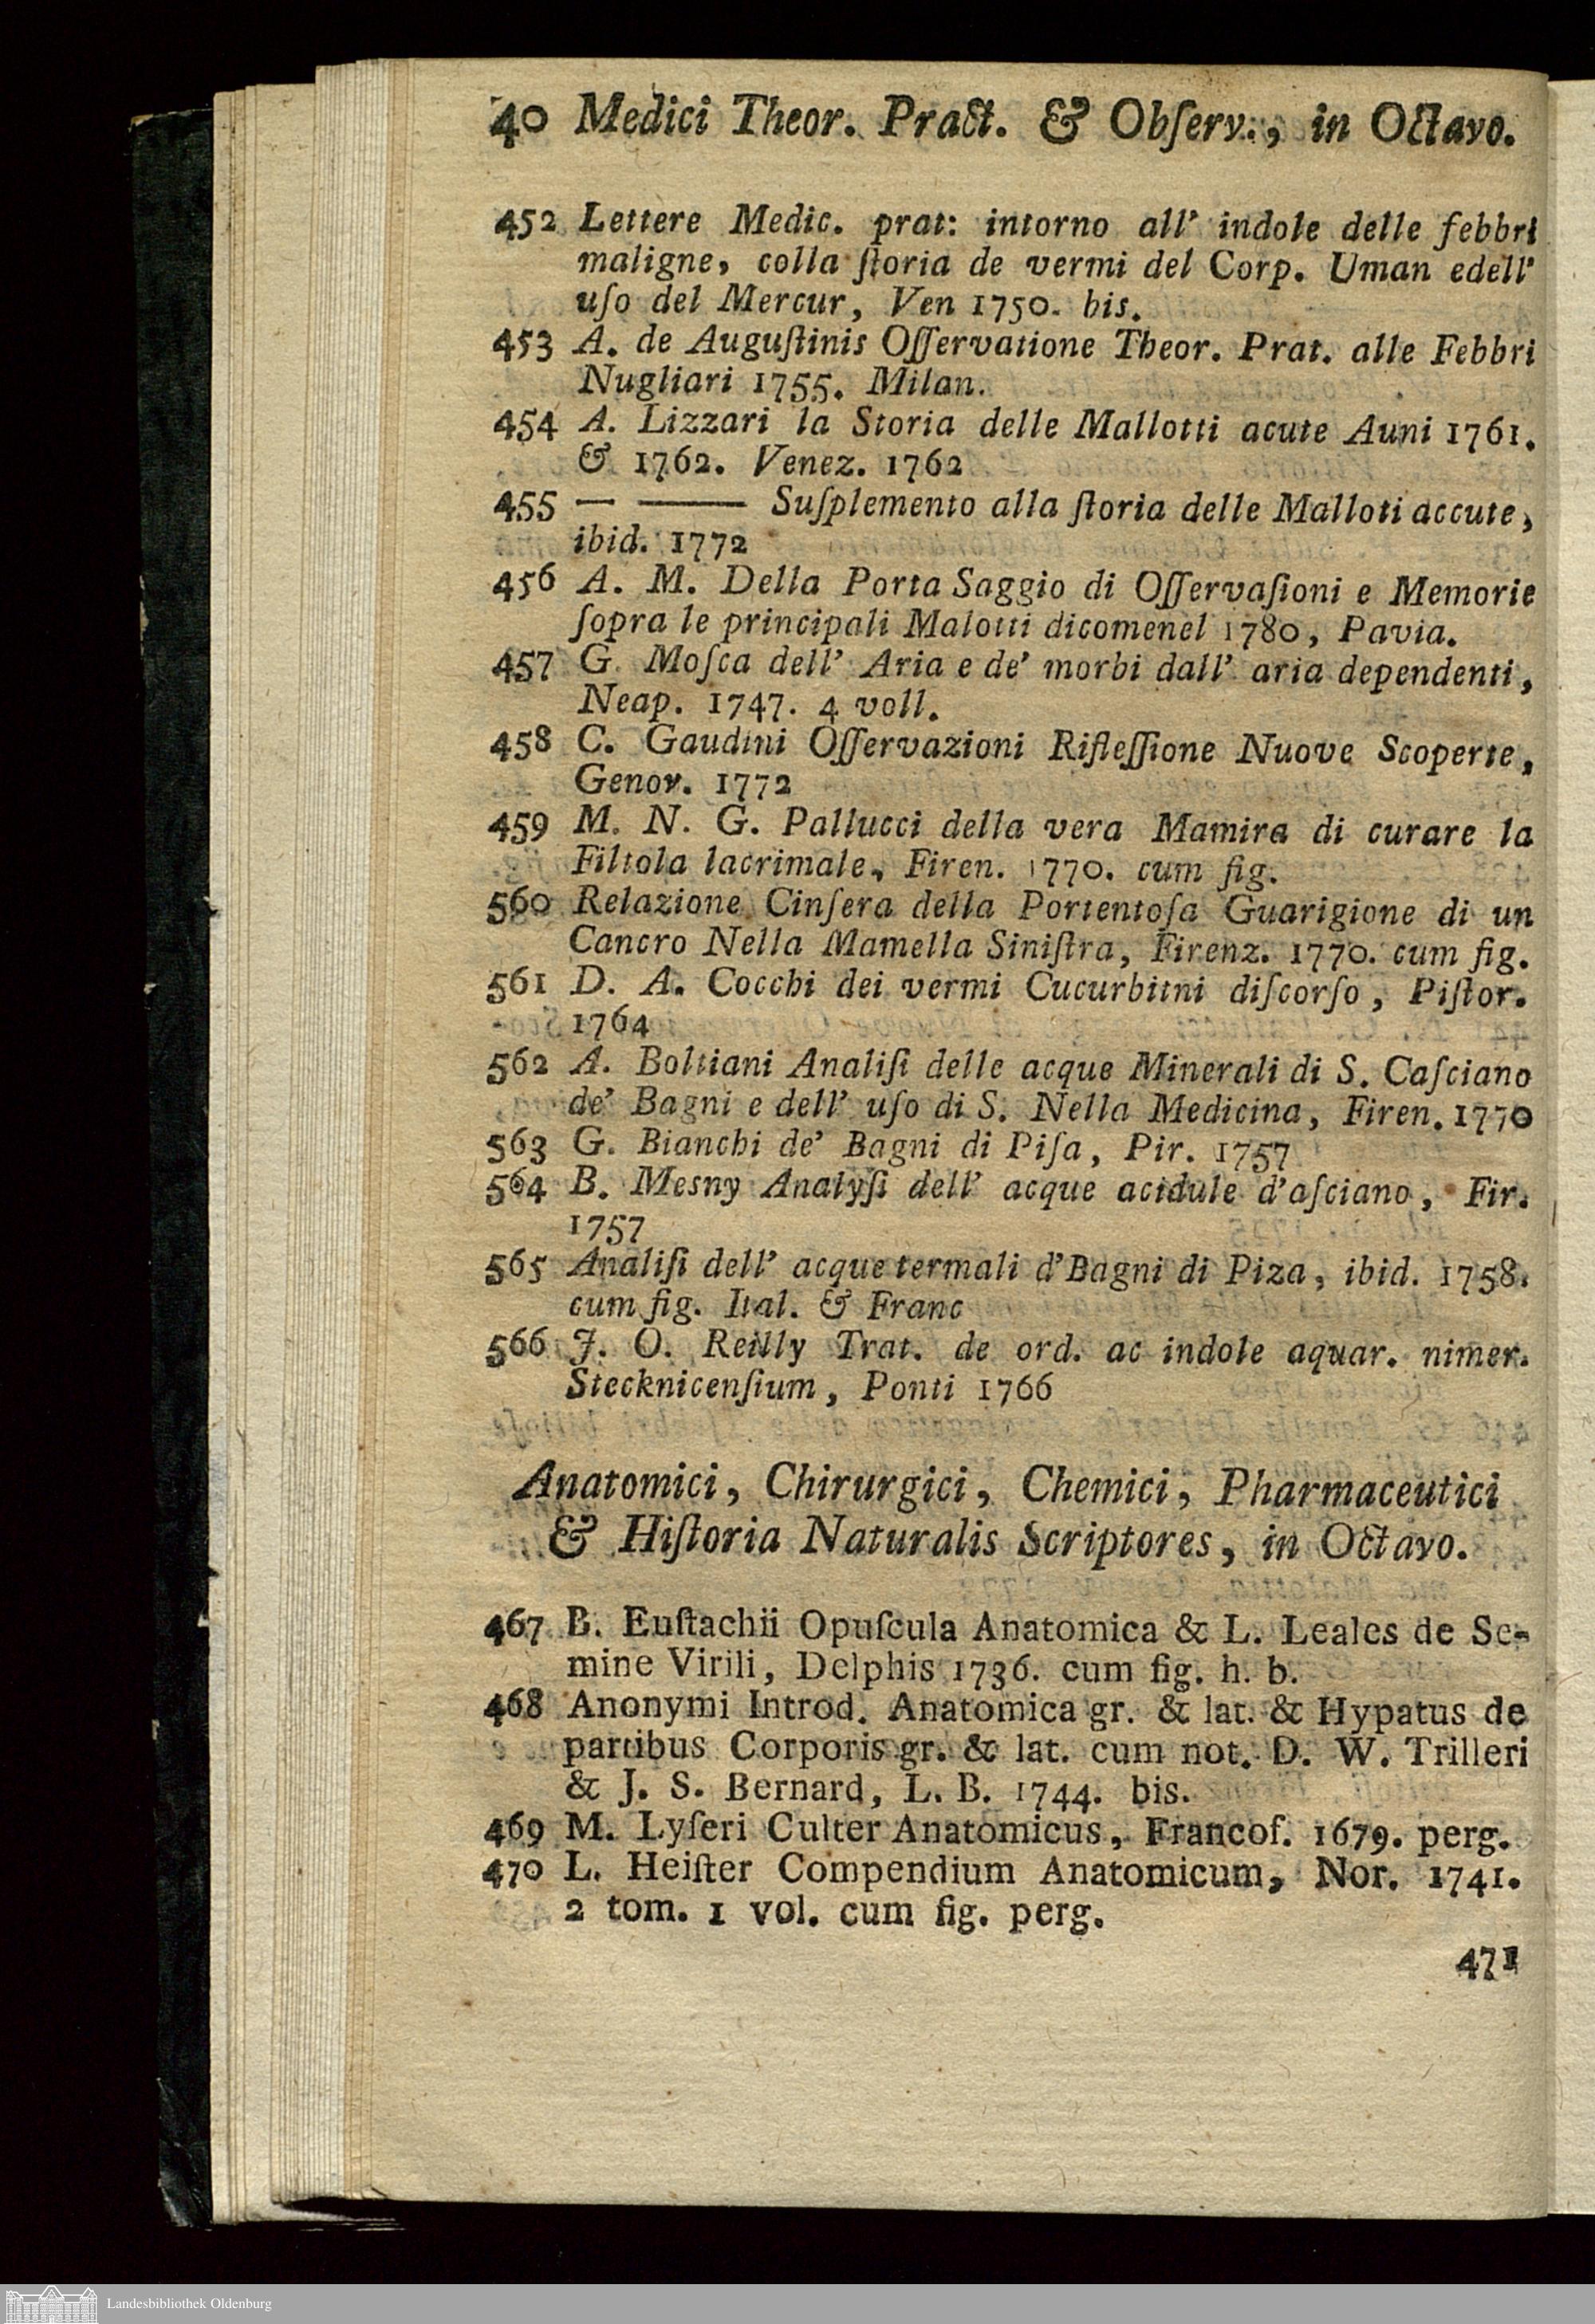 40 Medici Theor. Pract. & Obſerv., in Octavo.
452 Lettere Medic. prat: intorno all' indole delle febbri
maligne, colla ſtoria de vermi del Corp. Uman edell'
uſo del Mercur, Ven 1750. bis.
453 A. de Auguſtinis Oſſervatione Theor. Prat. alle Febbri
Nugliari 1755. Milan.
454 A. Lizzari la Storia delle Mallotti acute Auni 1761.
& 1762. Venez. 1762
455 — —— Suſplemento alla ſtoria delle Malloti accute,
ibid. 1772
456 A. M. Della Porta Saggio di Oſſervaſioni e Memorie
ſopra le principali Malotti dicomenel 1780, Pavia.
457 G. Moſca dell' Aria e de' morbi dall' aria dependenti,
Neap. 1747. 4 voll.
458 C. Gaudini Oſſervazioni Rifleſſione Nuove Scoperte,
Genov. 1772
459 M. N. G. Pallucci della vera Mamira di curare la
Filtola lacrimale, Firen. 1770. cum fig.
560 Relazione Cinſera della Portentoſa Guarigione di un
Cancro Nella Mamella Siniſtra, Firenz. 1770. cum fig.
561 D. A. Cocchi dei vermi Cucurbitni diſcorſo, Piſtor.
1764
562 A. Boltiani Analiſi delle acque Minerali di S. Caſciano
de' Bagni e dell' uſo di S. Nella Medicina, Firen. 1770
563 G. Bianchi de' Bagni di Piſa, Pir. 1757
564 B. Mesny Analyſi dell' acque acidule d'aſciano, Fir.
1757
565 Analiſi dell' acque termali d'Bagni di Piza, ibid. 1758.
cum fig. Ital. & Franc
566 J. O. Reilly Trat. de ord. ac indole aquar. nimer.
Stecknicenſium, Ponti 1766
Anatomici, Chirurgici, Chemici, Pharmaceutici
& Hiſtoria Naturalis Scriptores, in Octavo.
467 B. Euſtachii Opuſcula Anatomica & L. Leales de Se-
mine Virili, Delphis 1736. cum fig. h. b.
468 Anonymi Introd. Anatomica gr. & lat. & Hypatus de
partibus Corporis gr. & lat. cum not. D. W. Trilleri
& J. S. Bernard, L. B. 1744. bis.
469 M. Lyſeri Culter Anatomicus, Francof. 1679. perg.
470 L. Heiſter Compendium Anatomicum, Nor. 1741.
2 tom. 1 vol. cum fig. perg.
471
Landesbibliothek Oldenburg